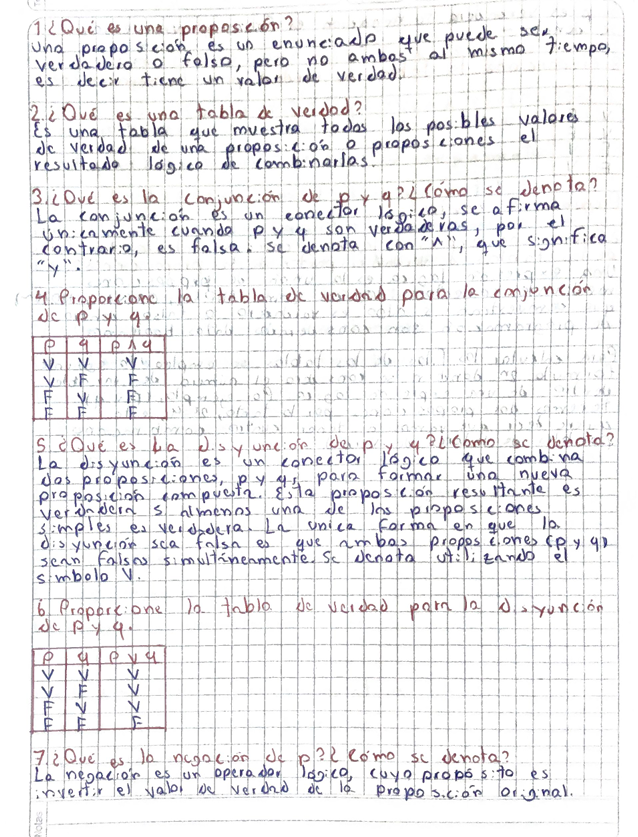 1.¿Qué es una proposición?
Una proposición es un enunciado que puede ser
verdadero o falso, pero no ambos al mismo tiempo,
es decir tiene un valor de verdad.
2.¿Qué es una tabla de verdad?
Es una tabla que muestra todos los posibles valores
de verdad de una proposición o proposiciones el
resultado lógico de combinarlas.
3.¿Qué es la conjunción de p y q?¿Cómo se denota?
La conjunción es un conector lógico, se afirma
únicamente cuando p y q son verdaderas, por el
contrario, es falsa. Se denota con "∧", que significa
"y".
4. Proporcione la tabla de verdad para la conjunción
de p y q.
p q p∧q
V V V
V F F
F V F
F F F
5.¿Qué es La disyunción de p y q?¿Cómo se denota?
La disyunción es un conector lógico que combina
dos proposiciones, p y q, para formar una nueva
proposición compuesta. Esta proposición resultante es
verdadera si almenos una de las proposiciones
simples es verdadera. La unica forma en que la
disyunción sea falsa es que ambas proposiciones (p y q)
sean falsas simultáneamente. Se denota utilizando el
simbolo V.
6. Proporcione la tabla de verdad para la disyunción
de p y q.
p q p v q
V V V
V F V
F V V
F F F
7.¿Qué es la negación de p?¿Cómo se denota?
La negación es un operador lógico, cuyo propósito es
invertir el valor de verdad de la proposición original.